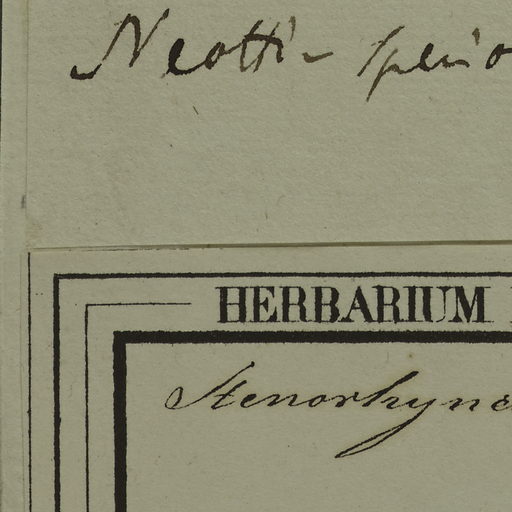 Neotti- specio
HERBARIUM
Stenorhync